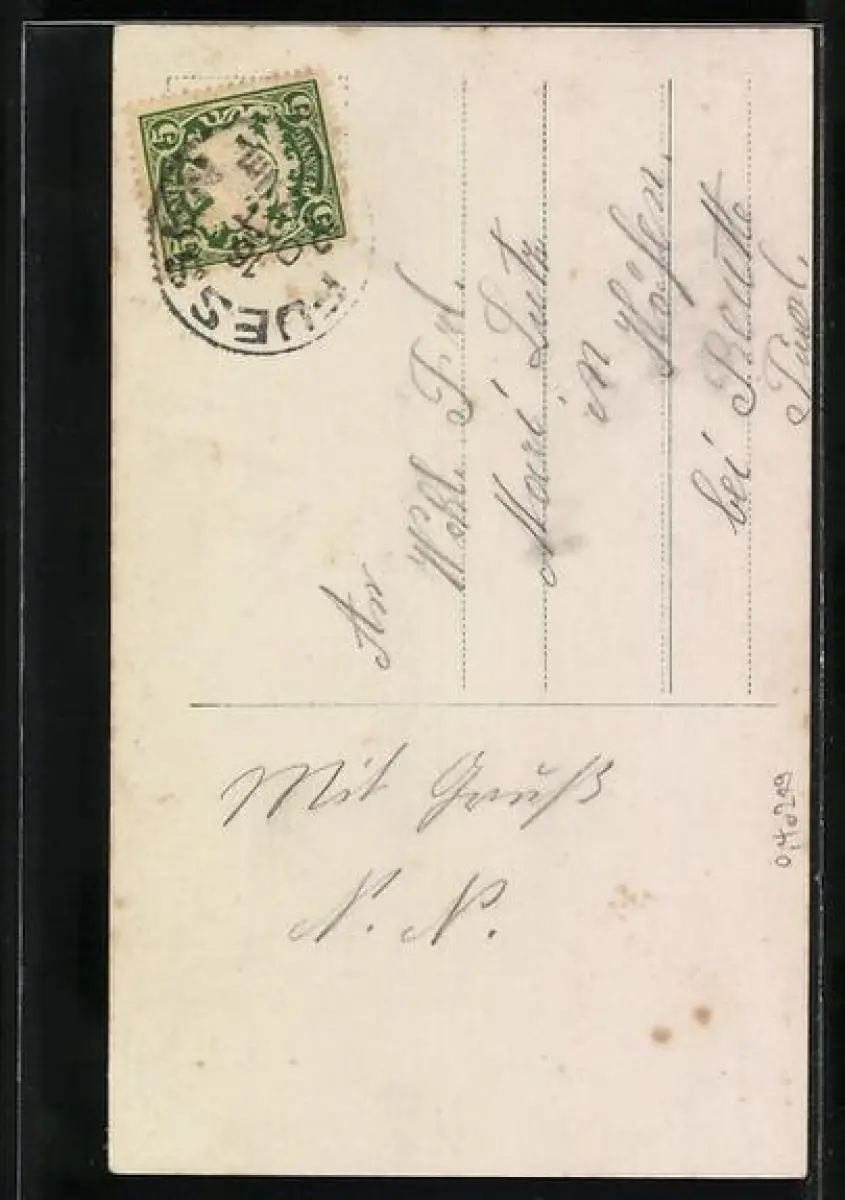 5 5
5 5
FUES
An
Wohl. Frl.
Mari Lutz
in
Höfen
bei Reutte
Tirol.
Mit Gruß
N. N.